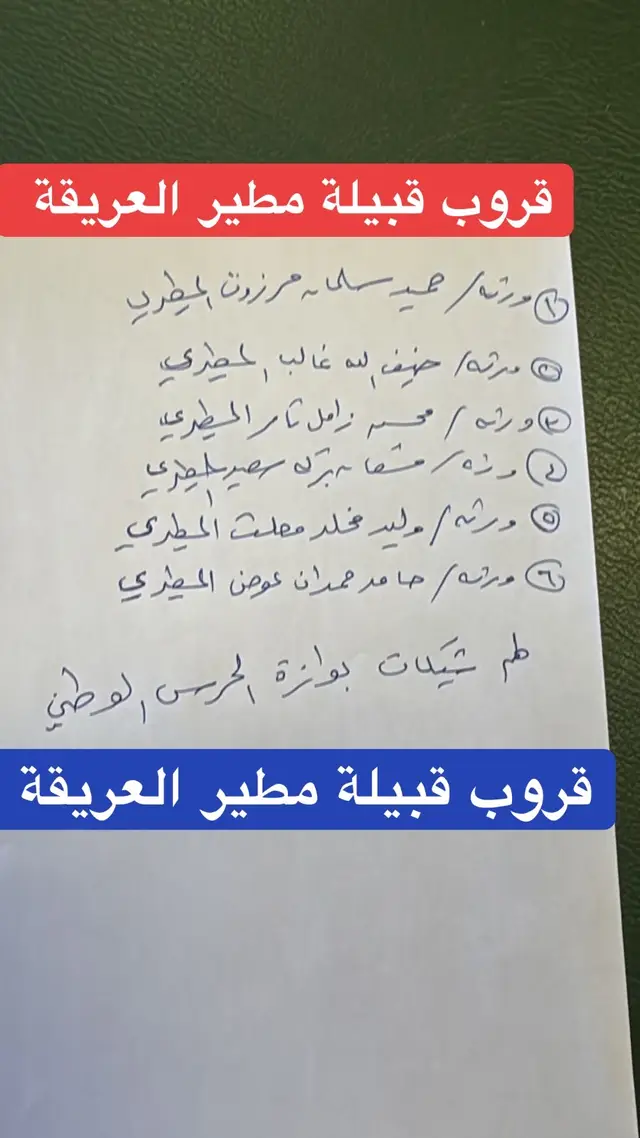 قروب قبيلة مطير العريقة
١ ورثه / حميد سلمان مرزوق المطيري
٢ ورثه / ضيف الله غالب المطيري
٣ ورثه / محسن زامل ثامر المطيري
٤ ورثه / مشعان بركه سعيد المطيري
٥ ورثه / وليد مخلد معلث المطيري
٦ ورثه / حامد حمدان عوض المطيري
لهم شيكات بوازرة الحرس الوطني
قروب قبيلة مطير العريقة